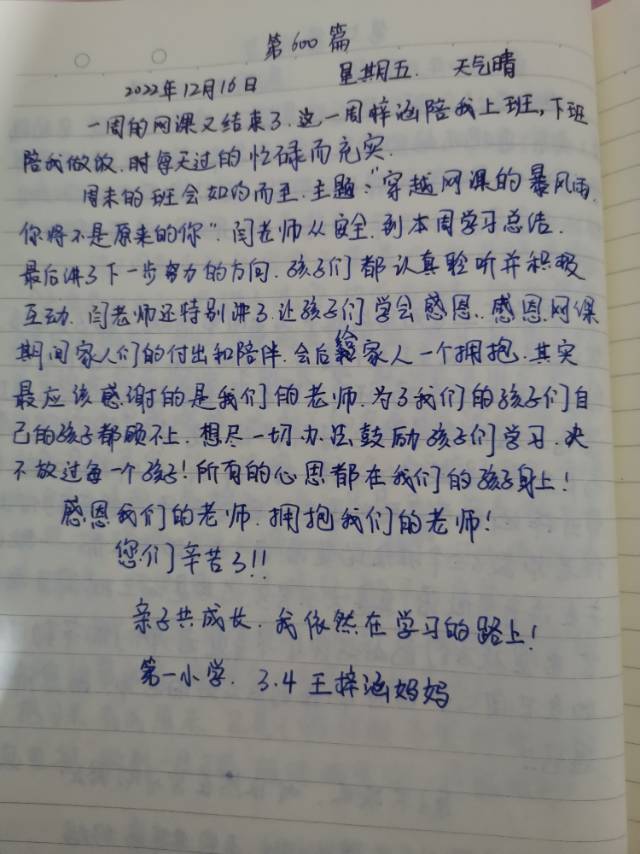 第600篇
2022年12月16日 星期五. 天气晴
一周的网课又结束了.这一周梓涵陪我上班,下班
陪我做饭.时每天过的忙碌而充实.
周末的班会如约而至.主题:“穿越网课的暴风雨.
你将不是原来的你”.闫老师从安全.到本周学习总结.
最后讲了下一步努力的方向.孩子们都认真聆听并积极
互动.闫老师还特别讲了让孩子们学会感恩.感恩网课
期间家人们的付出和陪伴.会后给家人一个拥抱.其实
最应该感谢的是我们的老师.为了我们的孩子们自
己的孩子都顾不上.想尽一切办法鼓励孩子们学习.决
不放过每一个孩子!所有的心思都在我们的孩子身上!
感恩我们的老师.拥抱我们的老师!
您们辛苦了!!
亲子共成长.我依然在学习的路上!
第一小学. 3.4 王梓涵妈妈